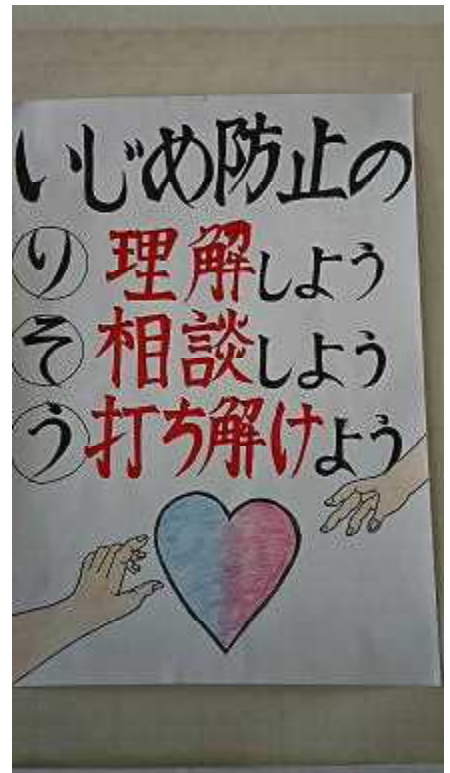 いじめ防止の
り 理解しよう
そ 相談しよう
う 打ち解けよう